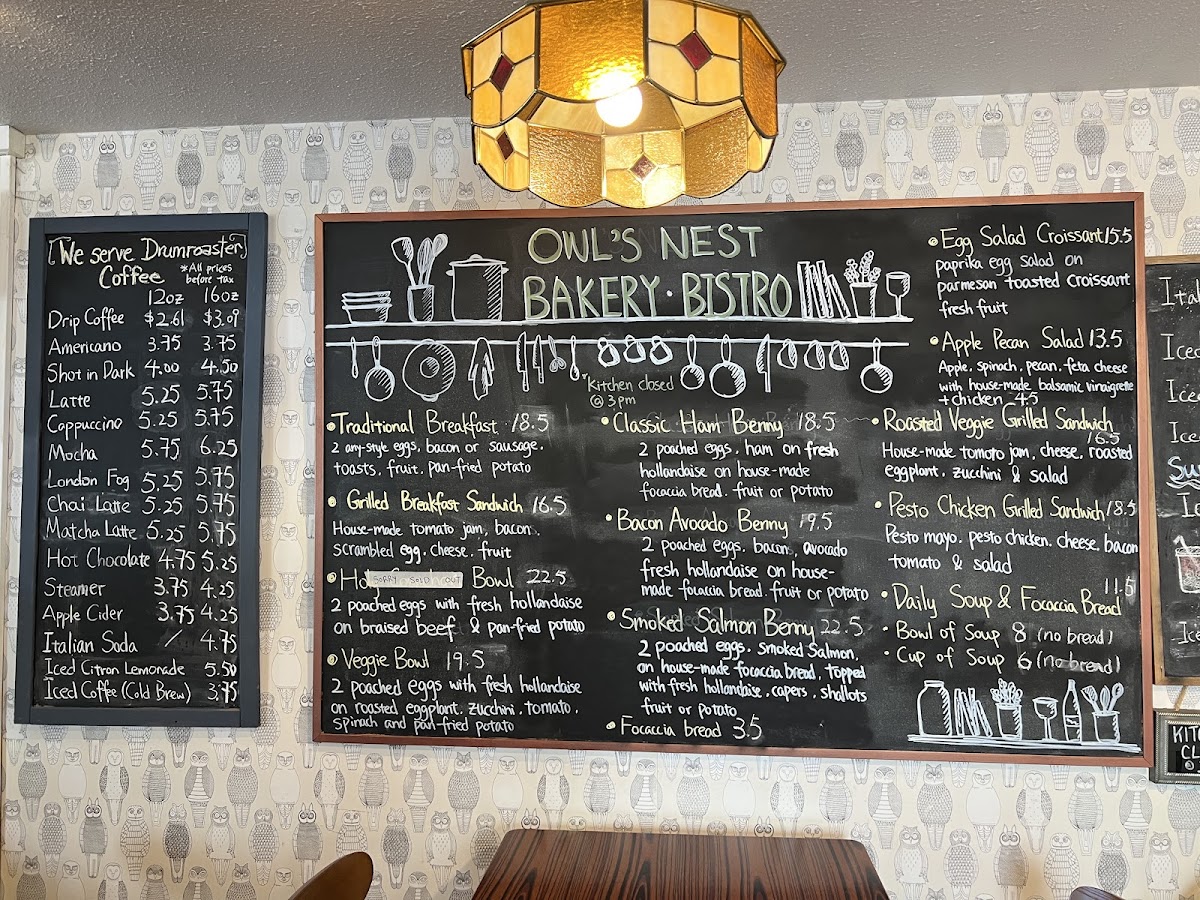 We serve Drumroaster
Coffee
*All prices
before tax
12oz 16oz
Drip Coffee $2.61 $3.09
Americano 3.75 3.75
Shot in Dark 4.00 4.50
Latte 5.25 5.75
Cappuccino 5.25 5.75
Mocha 5.75 6.25
London Fog 5.25 5.75
Chai Latte 5.25 5.75
Matcha Latte 5.25 5.75
Hot Chocolate 4.75 5.25
Steamer 3.75 4.25
Apple Cider 3.75 4.25
Italian Soda / 4.75
Iced Citron Lemonade 5.50
Iced Coffee (Cold Brew) 3.75
OWL'S NEST
BAKERY · BISTRO
Kitchen closed
@ 3pm
Traditional Breakfast · 18.5
2 any-style eggs, bacon or sausage,
toasts, fruit, pan-fried potato
Grilled Breakfast Sandwich 16.5
House-made tomato jam, bacon,
scrambled egg, cheese, fruit
SORRY SOLD OUT
Bowl 22.5
2 poached eggs with fresh hollandaise
on braised beef & pan-fried potato
Veggie Bowl 19.5
2 poached eggs with fresh hollandaise
on roasted eggplant, zucchini, tomato,
spinach and pan-fried potato
Classic Ham Benny 18.5
2 poached eggs, ham on fresh
hollandaise on house-made
focaccia bread, fruit or potato
Bacon Avocado Benny 19.5
2 poached eggs, bacon, avocado
fresh hollandaise on house-
made focaccia bread. fruit or potato
Smoked Salmon Benny 22.5
2 poached eggs, smoked Salmon,
on house-made focaccia bread, topped
with fresh hollandaise, capers, shallots
fruit or potato
Focaccia bread 3.5
Egg Salad Croissant 15.5
paprika egg salad on
parmesan toasted croissant
fresh fruit
Apple Pecan Salad 13.5
Apple, spinach, pecan, feta cheese
with house-made balsamic vinaigrette
+ chicken 4.5
Roasted Veggie Grilled Sandwich
16.5
House-made tomato jam, cheese, roasted
eggplant, zucchini & salad
Pesto Chicken Grilled Sandwich 18.5
Pesto mayo, pesto chicken, cheese, bacon
tomato & salad
11.5
Daily Soup & Focaccia Bread
Bowl of Soup 8 (no bread)
Cup of Soup 6 (no bread)